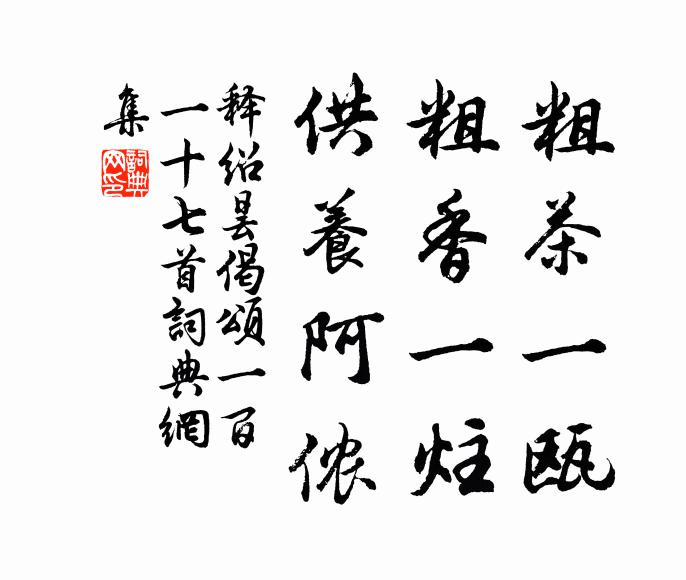 粗茶一瓯
粗香一炷
供養阿侬
释绍昙偈頌一百
一十七首詞典網
集
詞典
网印